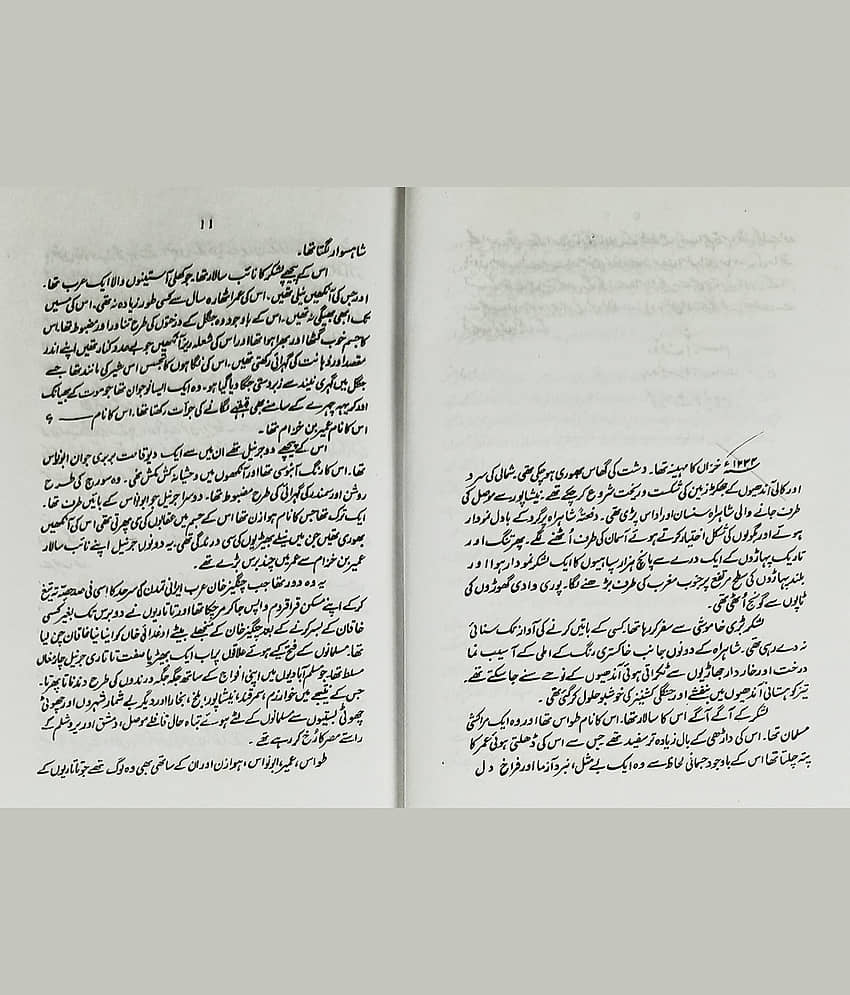 ۱۲۳۴ء خزاں کا مہینہ تھا۔ دشت کی گھاس بھوری ہو چکی تھی۔ شمالی کی سرد
اور کالی آندھیوں کے جھکڑ زمین کی شکست و ریخت شروع کر چکے تھے۔ نیشاپور سے موصل کی
طرف جانے والی شاہراہ سنسان اور اداس پڑی تھی۔ دفعتہً شاہراہ پر گرد کے بادل نمودار
ہوئے اور بگولوں کی شکل اختیار کرتے ہوئے آسمان کی طرف اُٹھنے لگے۔ پھر تنگ اور
تاریک پہاڑوں کے ایک درے سے پانچ ہزار سپاہیوں کا ایک لشکر نمودار ہوا اور
بلند پہاڑوں کی سطح مرتفع پر جنوب مغرب کی طرف بڑھنے لگا۔ پوری وادی گھوڑوں کی
ٹاپوں سے گونج اُٹھی تھی۔
لشکر بڑی خاموشی سے سفر کر رہا تھا۔ کسی کے باتیں کرنے کی آواز تک سنائی
نہ دے رہی تھی۔ شاہراہ کے دونوں جانب خاکستری رنگ کے املی کے آسیب نما
درخت اور خاردار جھاڑیوں سے ٹکراتی ہوئی آندھیوں کے نوحے سنے جا سکتے تھے۔
تیز کوہستانی آندھیوں میں بنفشے اور جنگلی کشنیز کی خوشبو حلول کر گئی تھی۔
لشکر کے آگے آگے اس کا سالار تھا۔ اس کا نام طواس تھا اور وہ ایک مراکشی
مسلمان تھا۔ اس کی داڑھی کے بال زیادہ تر سفید تھے جس سے اس کی ڈھلتی ہوئی عمر کا
پتہ چلتا تھا اس کے باوجود جسمانی لحاظ سے وہ ایک بے مثل، نبرد آزما اور فراخ دل
۱۱
شاہسوار لگتا تھا۔
اس کے پیچھے لشکر کا نائب سالار تھا۔ جو کھلی آستینوں والا ایک عرب تھا۔
اور جس کی آنکھیں نیلی تھیں۔ اس کی عمر اٹھارہ سال سے کسی طور زیادہ نہ تھی۔ اس کی مسیں
تک ابھی بھیگی نہ تھیں۔ اس کے باوجود وہ جنگل کے درختوں کی طرح تناور اور مضبوط تھا۔ اس
کا جسم خوب گٹھا اور بھرا ہوا تھا اور اس کی شعلہ ریز آنکھیں جو بے حد کنار تھیں اپنے اندر
مقصد اور ذہانت کی گہرائی رکھتی تھیں۔ اس کی نگاہوں کا تجسس اس شیر کی مانند تھا جسے
جنگل میں گہری نیند سے زبردستی جگا دیا گیا ہو۔ وہ ایک ایسا نوجوان تھا جو موت کے بھیانک
اور کریہہ چہرے کے سامنے بھی قہقہے لگانے کی جرأت رکھتا تھا۔ اس کا نام — ؟
اس کا نام عمیر بن خزام تھا۔
اس کے پیچھے دو جرنیل تھے ان میں سے ایک دیو قامت بربری جوان ابونواس
تھا۔ اس کا رنگ آبنوسی تھا اور آنکھوں میں وحشیانہ کشمکش تھی۔ وہ سورج کی طرح
روشن اور سمندر کی گہرائی کی طرح مضبوط تھا۔ دوسرا جرنیل جو ابونواس کے بائیں طرف تھا۔
ایک ترک تھا جس کا نام ہوازن تھا اس کے جسم میں عقابوں کی سی پھرتی تھی اس کی آنکھیں
بھوری تھیں جن میں نیلے بھیڑیوں کی سی درندگی تھی۔ یہ دونوں جرنیل اپنے نائب سالار
عمیر بن خزام سے عمر میں چند برس بڑے تھے۔
یہ وہ دور تھا جب چنگیز خان عرب ایرانی تمدن کی سرحد کا اسی فی صد حصہ تہ تیغ
کر کے اپنے مسکن قراقروم واپس جا کر مر چکا تھا اور تاتاریوں نے دو برس تک بغیر کسی
خاقان کے بسر کرنے کے بعد چنگیز خان کے منجھلے بیٹے اوغدائی خان کو اپنا نیا خاقان چن لیا
تھا۔ مسلمانوں کے فتح کیے ہوئے علاقوں پر اب ایک بھیڑیا صفت تاتاری جرنیل چارمغان
مسلط تھا۔ جو مسلم آبادیوں میں اپنی افواج کے ساتھ جگہ جگہ درندوں کی طرح دندناتا پھرتا۔
جس کے نتیجے میں خوارزم، سمرقند، نیشاپور، بلخ، بخارا اور دیگر بے شمار شہروں اور چھوٹی
چھوٹی بستیوں سے مسلمانوں کے لٹے ہوئے تباہ حال قافلے موصل، دمشق اور یروشلم کے
راستے مصر کا رُخ کر رہے تھے۔
طواس، عمیر، ابونواس، ہوازن اور ان کے ساتھی بھی وہ لوگ تھے جو تاتاریوں کے